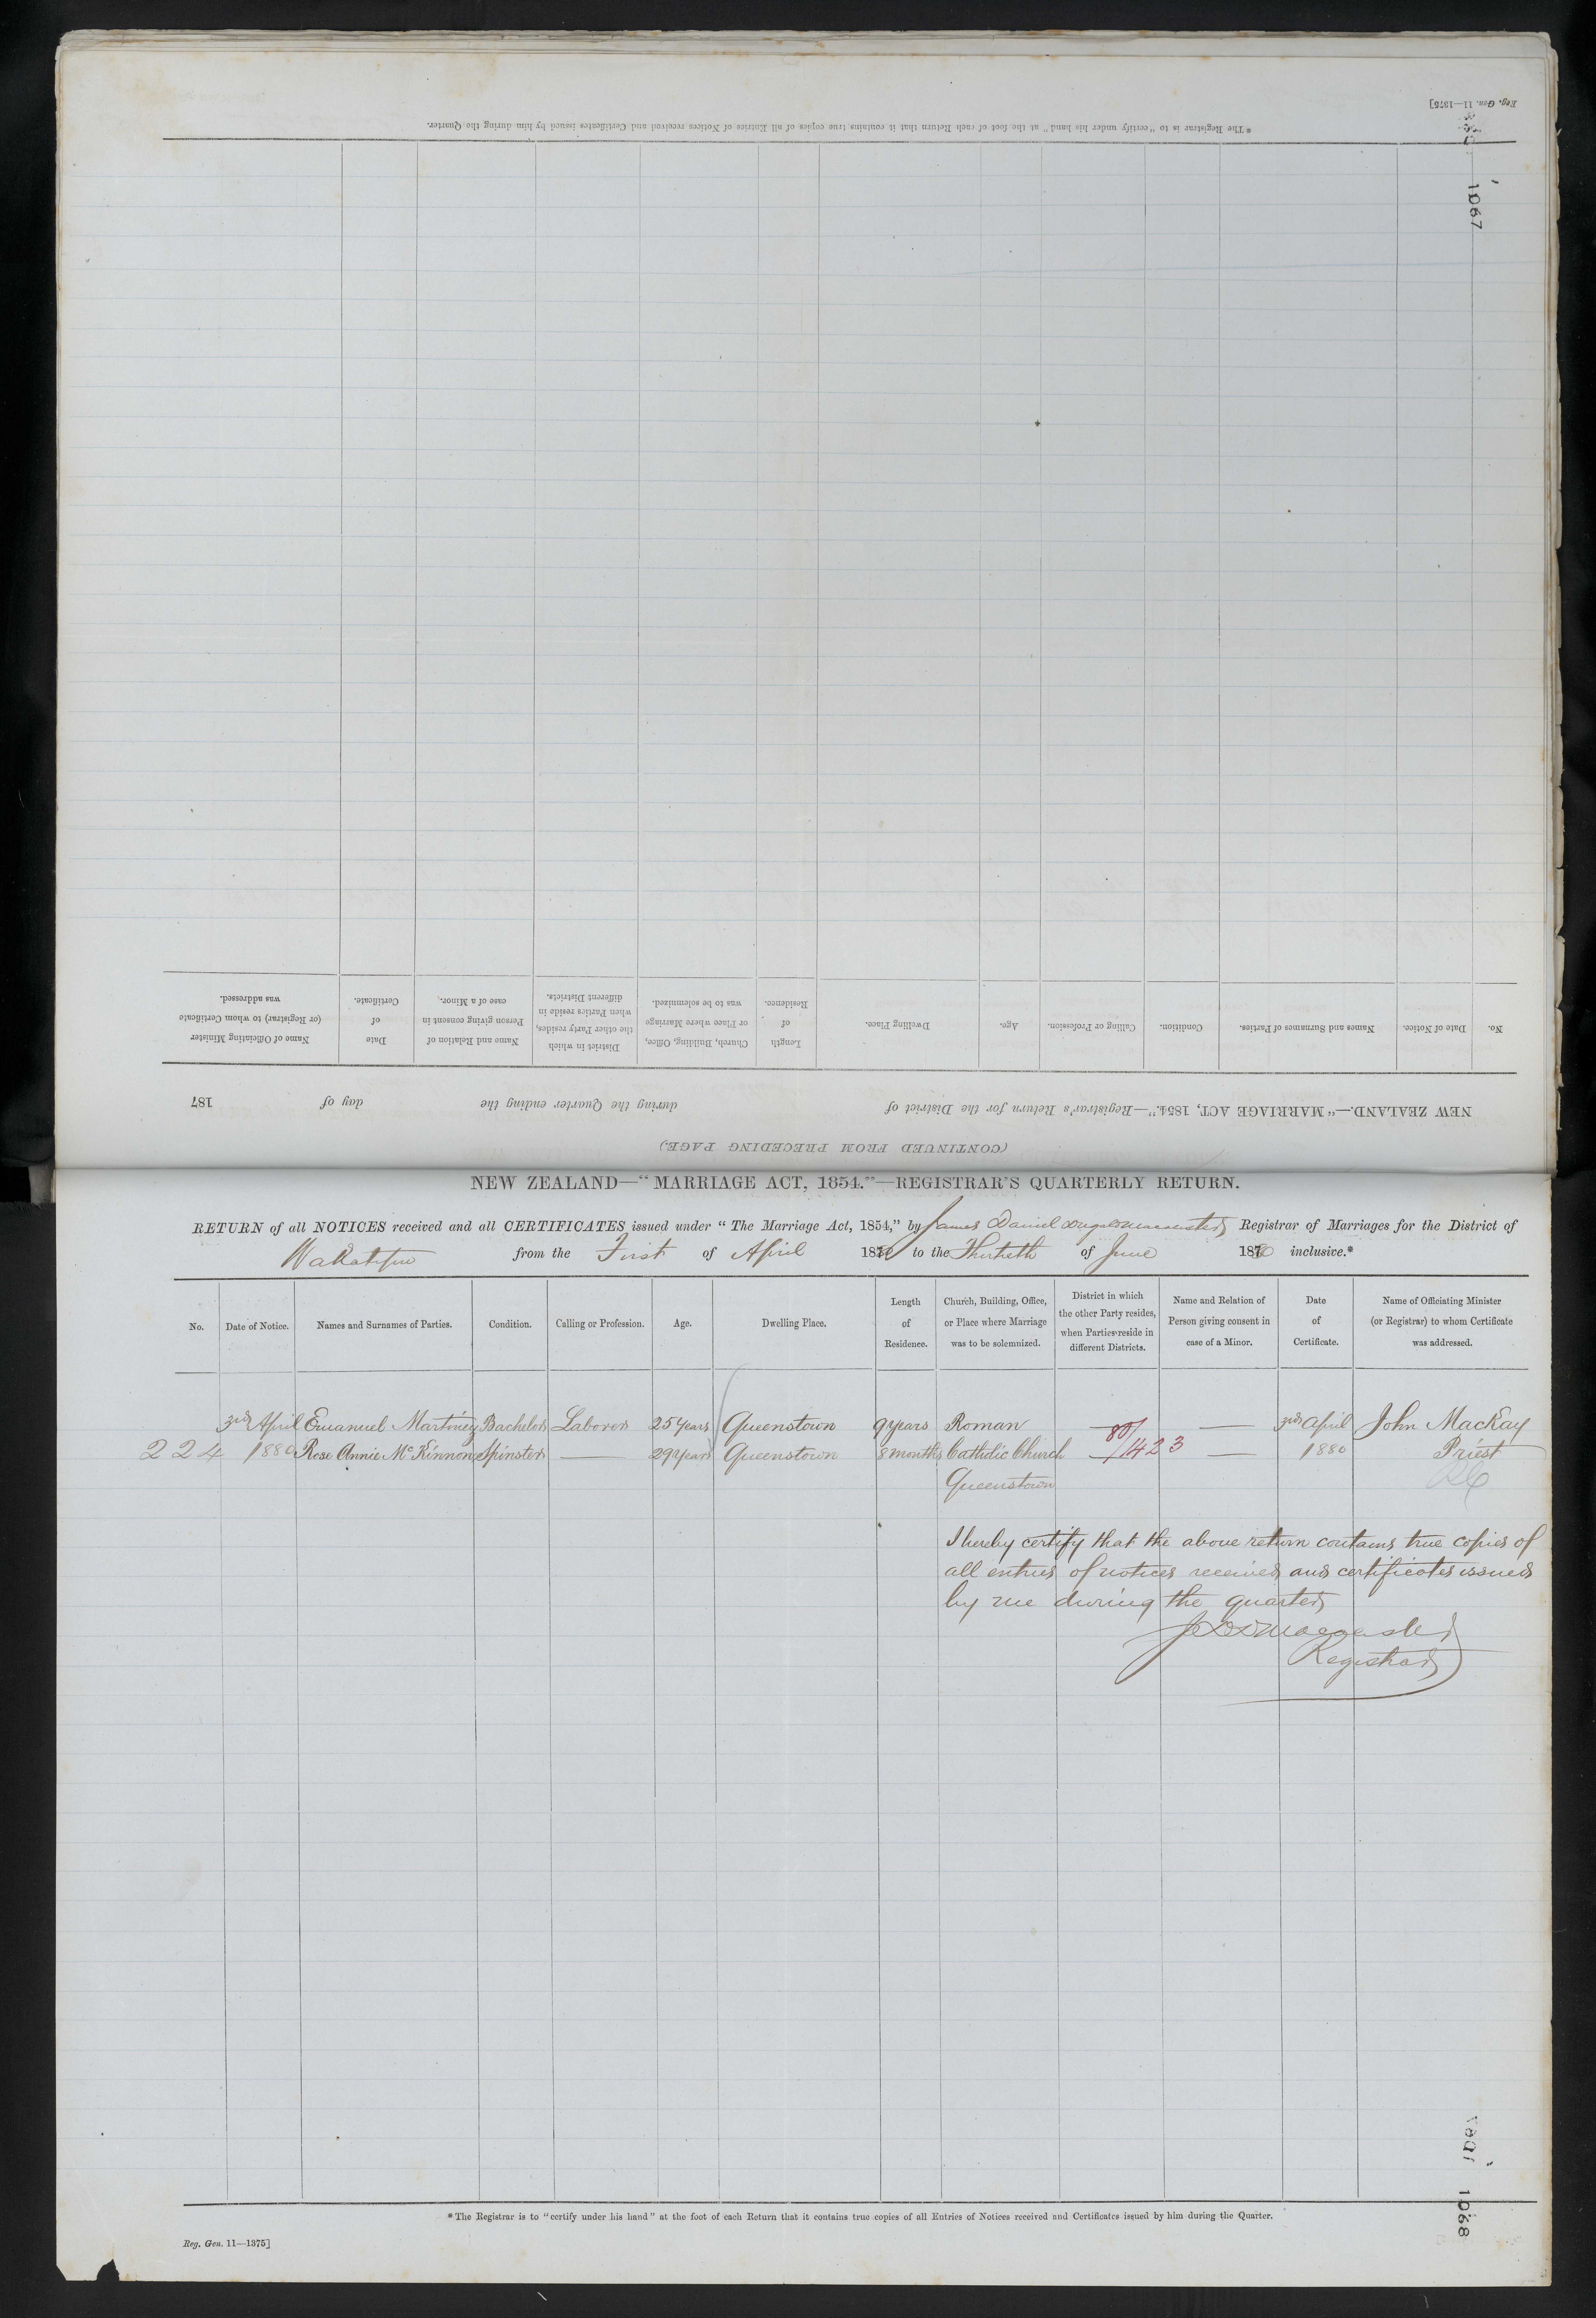 Reg. Gen. 11—1375]
* The Registrar is to "certify under his hand" at the foot of each Return that it contains true copies of all Entries of Notices received and Certificates issued by him during the Quarter.
1067
(CONTINUED FROM PRECEDING PAGE.)
NEW ZEALAND.—"MARRIAGE ACT, 1854."—Registrar's Return for the District of during the Quarter ending the day of 187
No. Date of Notice. Names and Surnames of Parties. Condition. Calling or Profession. Age. Dwelling Place. Length of Residence. Church, Building, Office, or Place where Marriage was to be solemnized. District in which the other Party resides, when Parties reside in different Districts. Name and Relation of Person giving consent in case of a Minor. Date of Certificate. Name of Officiating Minister (or Registrar) to whom Certificate was addressed.
NEW ZEALAND—"MARRIAGE ACT, 1854."—REGISTRAR'S QUARTERLY RETURN.
RETURN of all NOTICES received and all CERTIFICATES issued under "The Marriage Act, 1854," by James Daniel Registrar of Marriages for the District of
Wakatipu from the First of April 1880 to the Thirtieth of June 1880 inclusive.*
No. Date of Notice. Names and Surnames of Parties. Condition. Calling or Profession. Age. Dwelling Place. Length of Residence. Church, Building, Office, or Place where Marriage was to be solemnized. District in which the other Party resides, when Parties reside in different Districts. Name and Relation of Person giving consent in case of a Minor. Date of Certificate. Name of Officiating Minister (or Registrar) to whom Certificate was addressed.
3rd April Emanuel Martinez Bachelor Laborer 25 years Queenstown 9 years Roman — — 3rd April John MacKay
224 1880 Rose Annie McKinnon Spinster — 29 years Queenstown 8 months Catholic Church — 80/1423 — 1880 Priest
Queenstown RC
I hereby certify that the above return contains true copies of
all entries of notices received and certificates issued
by me during the quarter
Registrar
1067
1068
* The Registrar is to "certify under his hand" at the foot of each Return that it contains true copies of all Entries of Notices received and Certificates issued by him during the Quarter.
Reg. Gen. 11—1375]